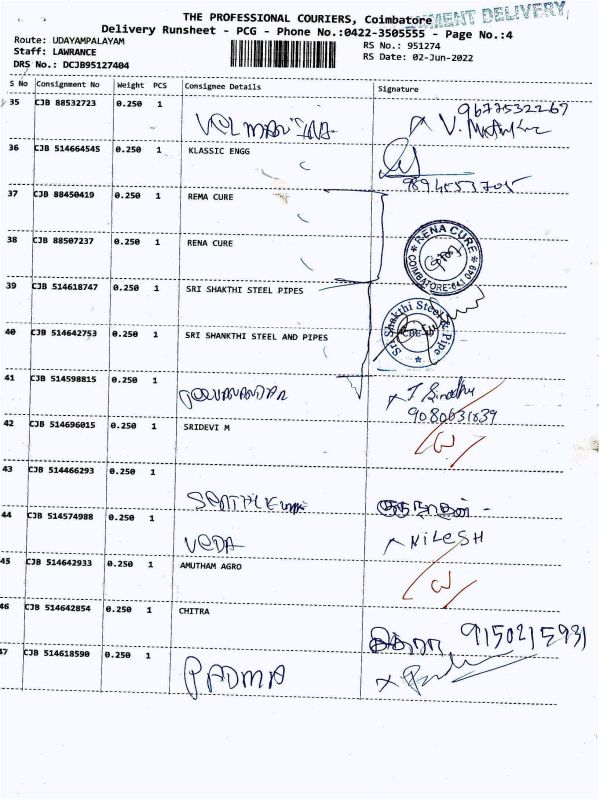 THE PROFESSIONAL COURIERS, Coimbatore
DELIVERY,
Delivery Runsheet - PCG - Phone No.:0422-3505555 - Page No.:4
Route: UDAYAMPALAYAM
RS No.: 951274
Staff: LAWRANCE
RS Date: 02-Jun-2022
DRS No.: DCJB95127404
S No Consignment No Weight PCS Consignee Details Signature
35 CJB 88532723 0.250 1
9677532267
V.
36 CJB 514664545 0.250 1 KLASSIC ENGG
9894553705
37 CJB 88450419 0.250 1 REMA CURE
38 CJB 88507237 0.250 1 RENA CURE
RENA CURE
COIMBATORE-641 049
39 CJB 514618747 0.250 1 SRI SHAKTHI STEEL PIPES
40 CJB 514642753 0.250 1 SRI SHANKTHI STEEL AND PIPES
Sri Shakthi Steel & Pipe
41 CJB 514598815 0.250 1
9080631839
42 CJB 514696015 0.250 1 SRIDEVI M
43 CJB 514466293 0.250 1
44 CJB 514574988 0.250 1 VEDA NILESH
45 CJB 514642933 0.250 1 AMUTHAM AGRO
46 CJB 514642854 0.250 1 CHITRA
9150215931
47 CJB 514618590 0.250 1 PADMA